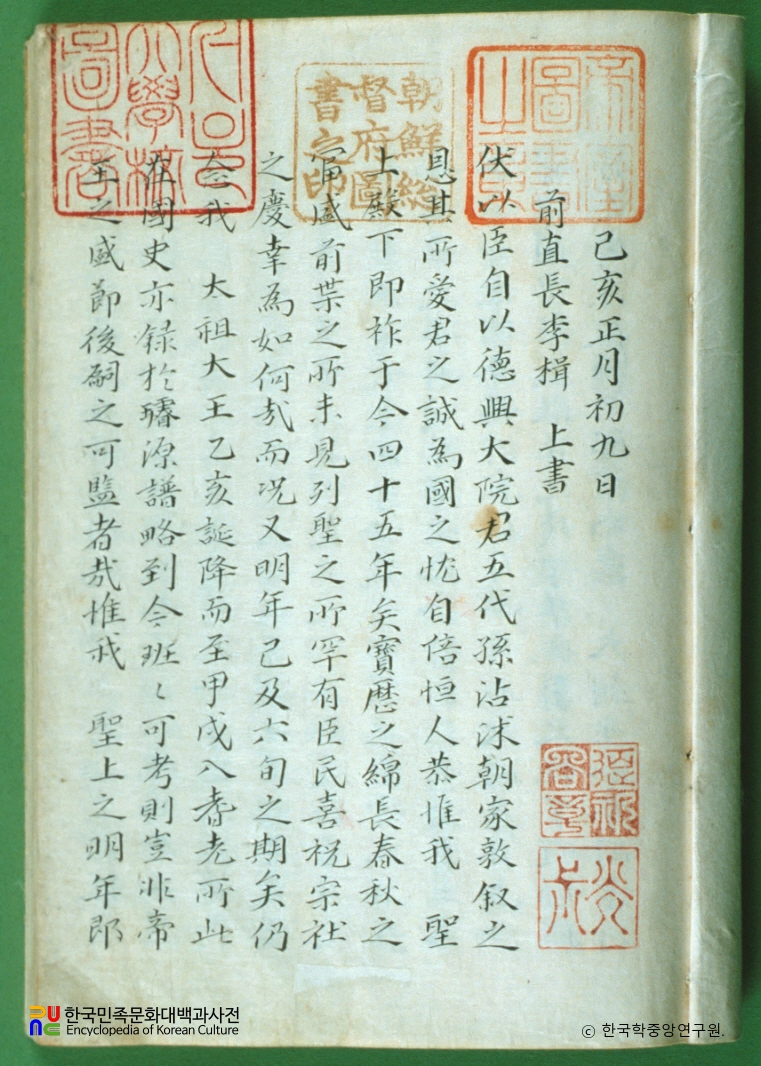 己亥正月初九日
前直長李楫 上書
伏以臣自以德興大院君五代孫沾沐朝家敦叙之
恩其所愛君之誠為國之忱自倍恒人恭惟我 聖
上殿下即祚于今四十五年矣寶曆之綿長春秋之
富盛前葉之所未見列聖之所罕有臣民喜祝宗社
之慶幸為如何哉而况又明年已及六旬之期矣仍
念我 太祖大王乙亥誕降而至甲戌入耆老所此
在國史亦錄於璿源譜略到今班〻可考則豈非帝
王之盛節後嗣之可監者哉惟我 聖上之明年即
帝室
圖書
之章
朝鮮總
督府圖
書之印
서울
大學校
圖書
한국민족문화대백과사전
Encyclopedia of Korean Culture
ⓒ 한국학중앙연구원.